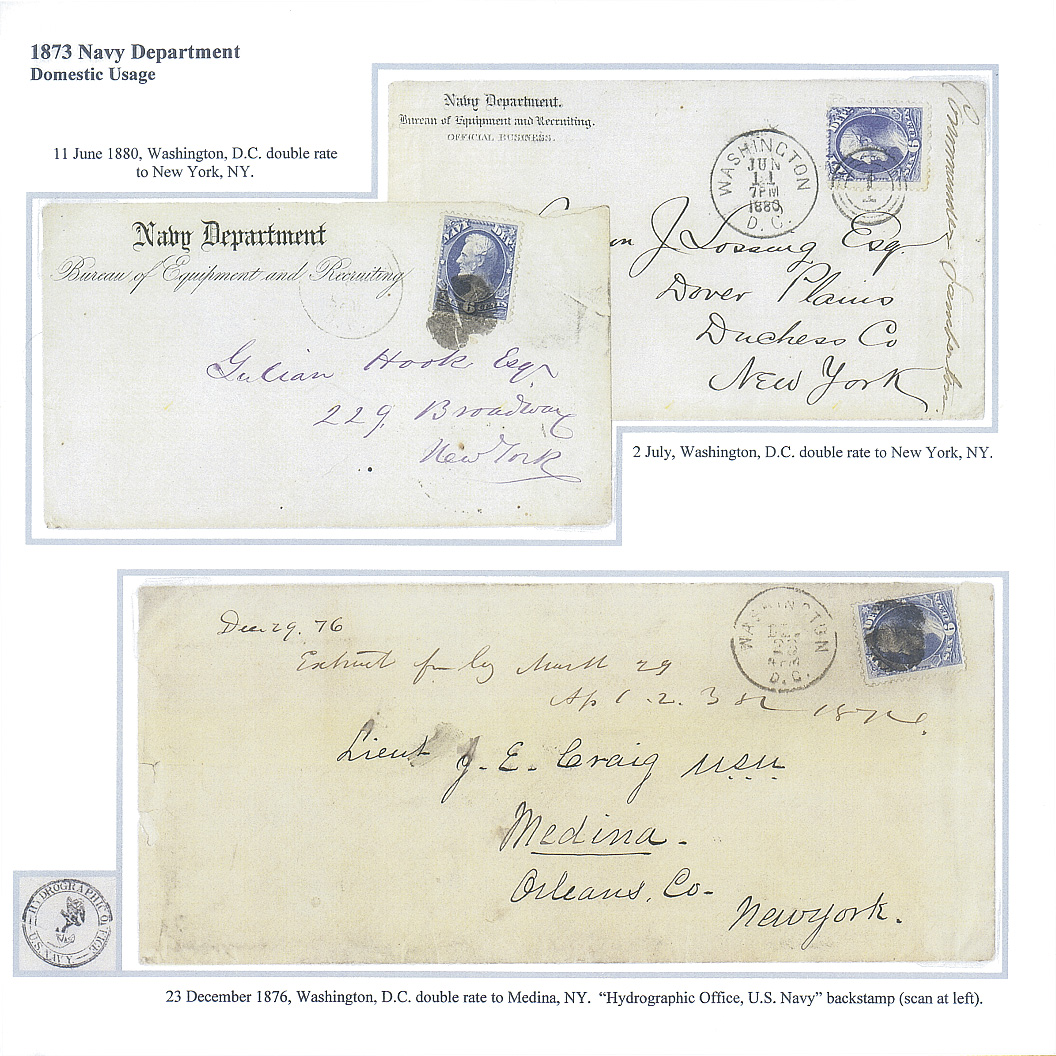 1873 Navy Department
Domestic Usage
11 June 1880, Washington, D.C. double rate
to New York, NY.
Navy Department.
Bureau of Equipment and Recruiting.
OFFICIAL BUSINESS.
WASHINGTON
JUN
11
7PM
1880
D.C.
J Lossing Esq.
Dover Plains
Duchess Co
New York
Commander
Navy Department
Bureau of Equipment and Recruiting
6
Julian Hook Esqr
229 Broadway
New York
2 July, Washington, D.C. double rate to New York, NY.
Dec 29. 76
Extract fm March 29
Ap 1. 2. 3 1876.
WASHINGTON
D.C.
Lieut J. E. Craig USN
Medina.
Orleans. Co.
New York.
HYDROGRAPHIC OFFICE
U.S. NAVY
23 December 1876, Washington, D.C. double rate to Medina, NY. "Hydrographic Office, U.S. Navy" backstamp (scan at left).